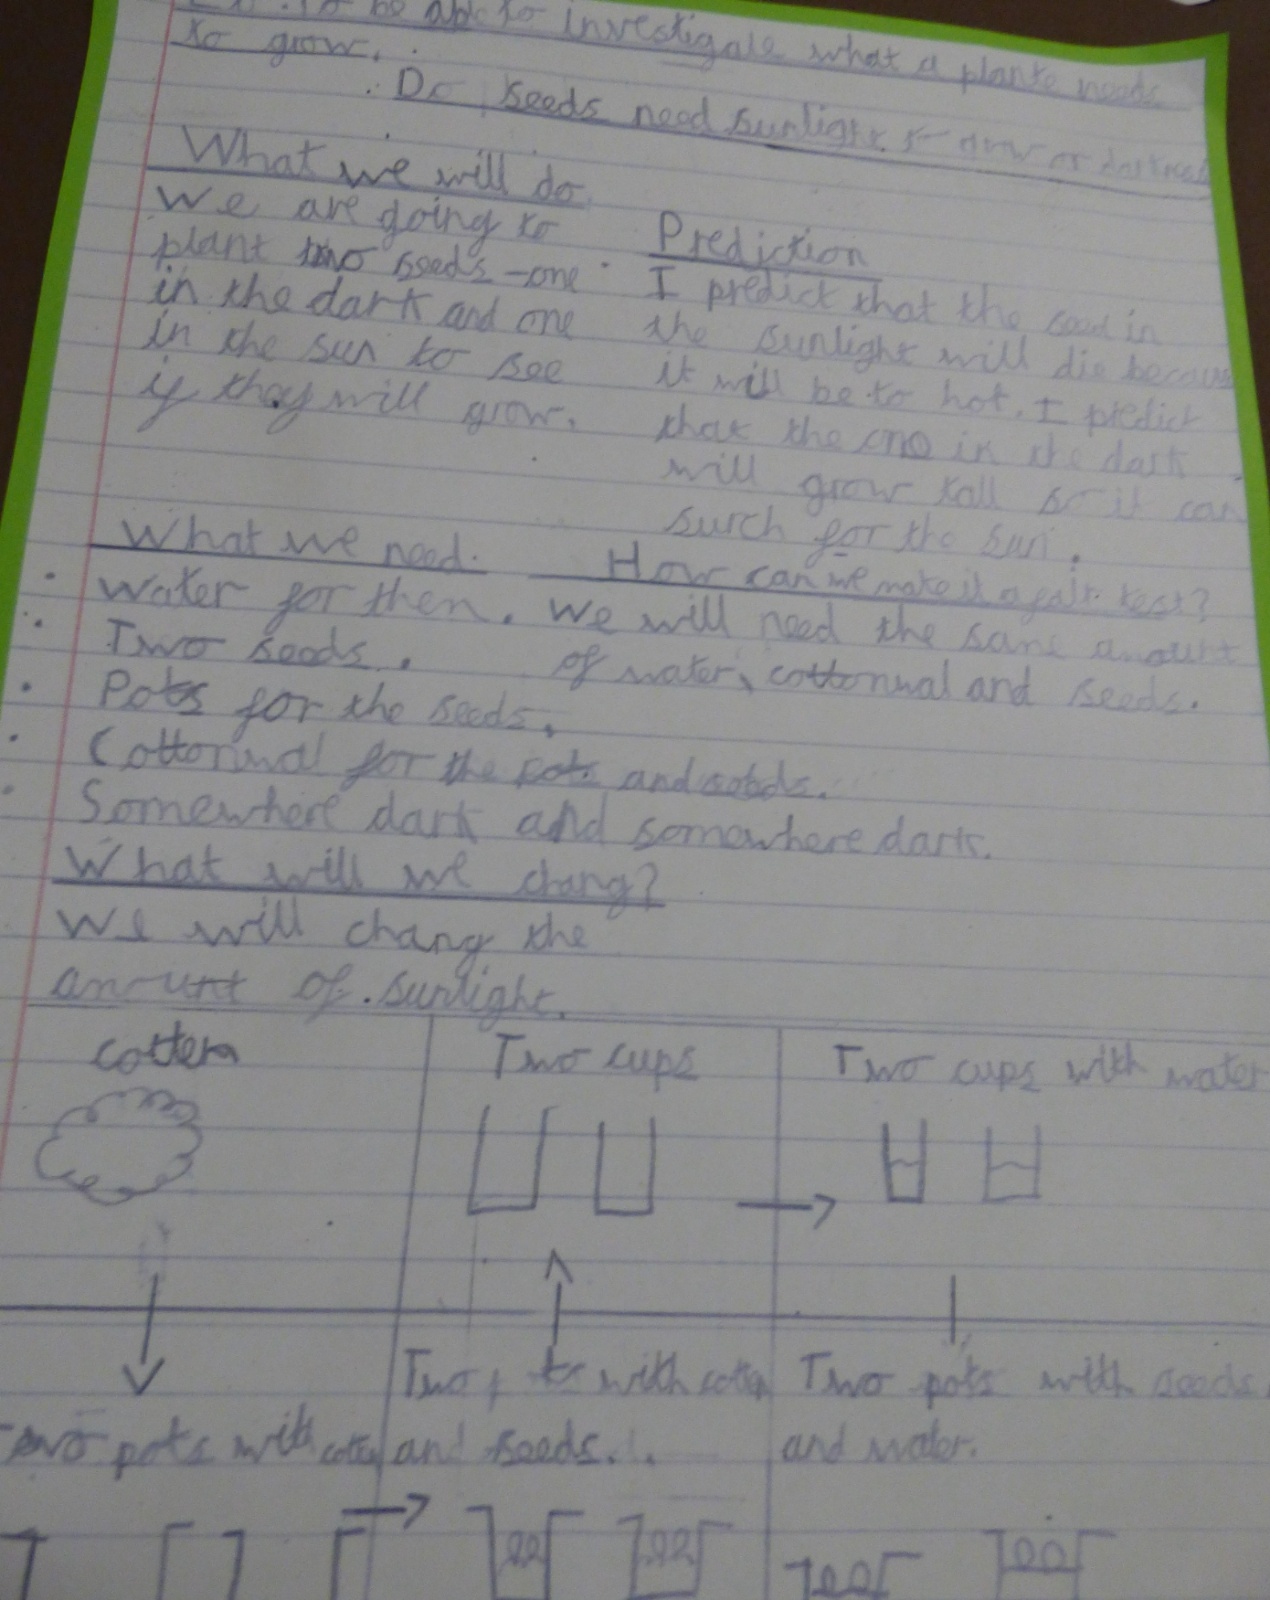 To be able to investigate what a plante needs
to grow.
Do seeds need sunlight or darknes
What we will do
We are going to
plant two seeds - one
in the dark and one
in the sun to see
if they will grow.
Prediction
I predict that the seed in
the sunlight will die because
it will be to hot. I predict
that the one in the dark
will grow tall so it can
surch for the sun.
What we need.
· Water for them.
· Two seeds.
· Pots for the seeds.
· Cottonwal for the pots and seeds.
· Somewhere dark and somewhere dark.
How can we make it a fair test?
We will need the same amount
of water, cottonwal and seeds.
What will we chang?
We will chang the
amount of sunlight.
cotten
Two cups
Two cups with water
Two pots with cotten
Two with cotten
and seeds.
Two pots with seeds
and water.